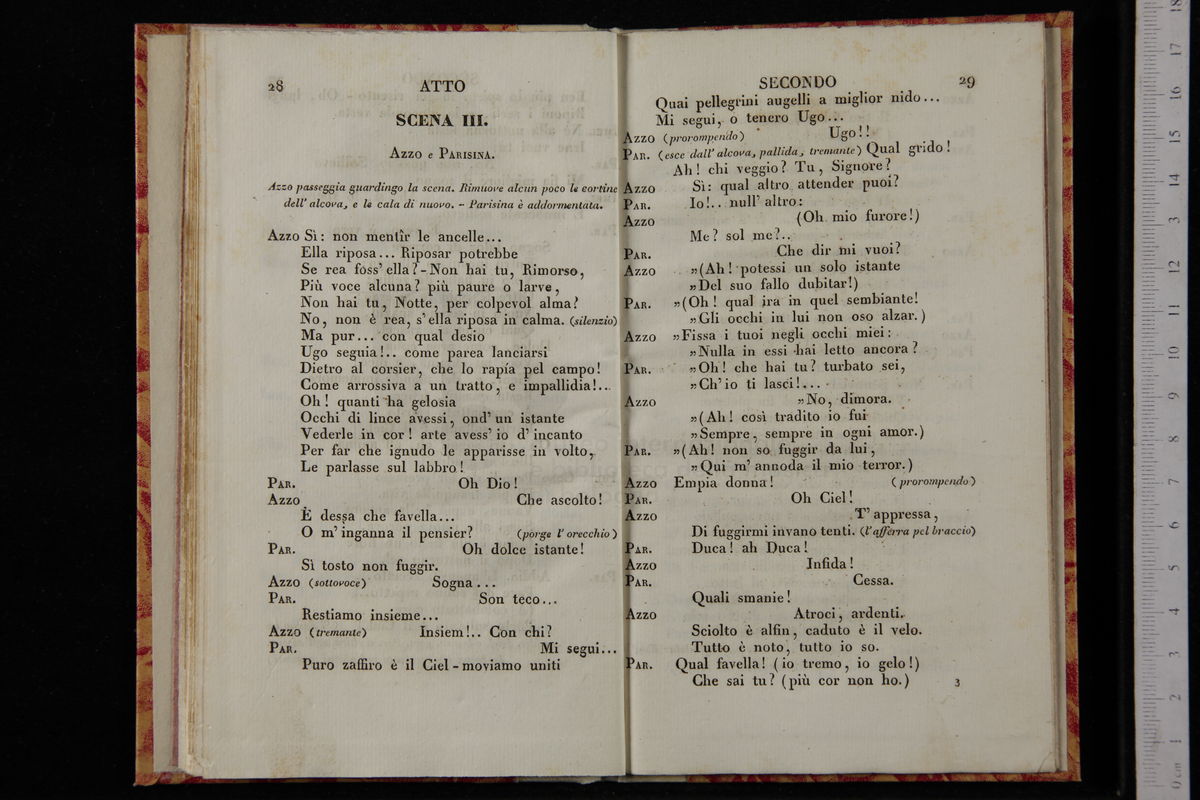 28 ATTO
SCENA III.
AZZO e PARISINA.
Azzo passeggia guardingo la scena. Rimuove alcun poco le cortine
dell' alcova, e le cala di nuovo. - Parisina è addormentata.
AZZO Sì: non mentîr le ancelle...
Ella riposa... Riposar potrebbe
Se rea foss' ella? - Non hai tu, Rimorso,
Più voce alcuna? più paure o larve,
Non hai tu, Notte, per colpevol alma?
No, non è rea, s' ella riposa in calma. (silenzio)
Ma pur... con qual desio
Ugo seguia!.. come parea lanciarsi
Dietro al corsier, che lo rapía pel campo!
Come arrossiva a un tratto, e impallidia!...
Oh! quanti ha gelosia
Occhi di lince avessi, ond' un istante
Vederle in cor! arte avess' io d' incanto
Per far che ignudo le apparisse in volto,
Le parlasse sul labbro!
PAR. Oh Dio!
AZZO Che ascolto!
È dessa che favella...
O m' inganna il pensier? (porge l' orecchio)
PAR. Oh dolce istante!
Sì tosto non fuggir.
AZZO (sottovoce) Sogna...
PAR. Son teco...
Restiamo insieme...
AZZO (tremante) Insiem!.. Con chi?
PAR. Mi segui...
Puro zaffiro è il Ciel - moviamo uniti
SECONDO 29
Quai pellegrini augelli a miglior nido...
Mi segui, o tenero Ugo...
AZZO (prorompendo) Ugo!!
PAR. (esce dall' alcova, pallida, tremante) Qual grido!
Ah! chi veggio? Tu, Signore?
AZZO Sì: qual altro attender puoi?
PAR. Io!.. null' altro:
AZZO (Oh mio furore!)
Me? sol me?..
PAR. Che dir mi vuoi?
AZZO „(Ah! potessi un solo istante
„Del suo fallo dubitar!)
PAR. „(Oh! qual ira in quel sembiante!
„Gli occhi in lui non oso alzar.)
AZZO „Fissa i tuoi negli occhi miei:
„Nulla in essi hai letto ancora?
PAR. „Oh! che hai tu? turbato sei,
„Ch' io ti lasci!...
AZZO „No, dimora.
„(Ah! così tradito io fui
„Sempre, sempre in ogni amor.)
PAR. „(Ah! non so fuggir da lui,
„Qui m' annoda il mio terror.)
AZZO Empia donna! (prorompendo)
PAR. Oh Ciel!
AZZO T' appressa,
Di fuggirmi invano tenti. (l'afferra pel braccio)
PAR. Duca! ah Duca!
AZZO Infida!
PAR. Cessa.
Quali smanie!
AZZO Atroci, ardenti.
Sciolto è alfin, caduto è il velo.
Tutto è noto, tutto io so.
PAR. Qual favella! (io tremo, io gelo!)
Che sai tu? (più cor non ho.) 3